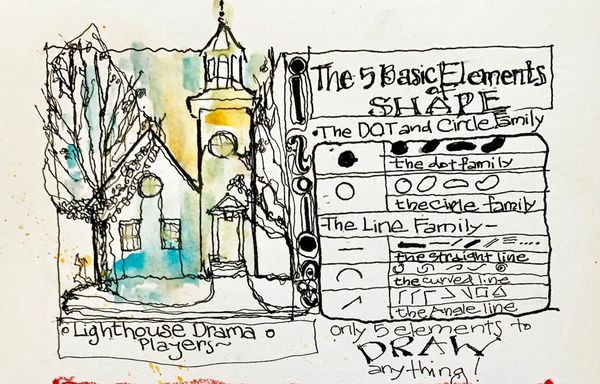 The 5 Basic Elements
of
SHAPE
•The DOT and Circle Family
the dot family
the circle family
The Line Family-
the straight line
the curved line
the Angle line
only 5 elements to
DRAW
anything!
Lighthouse Drama
Players~